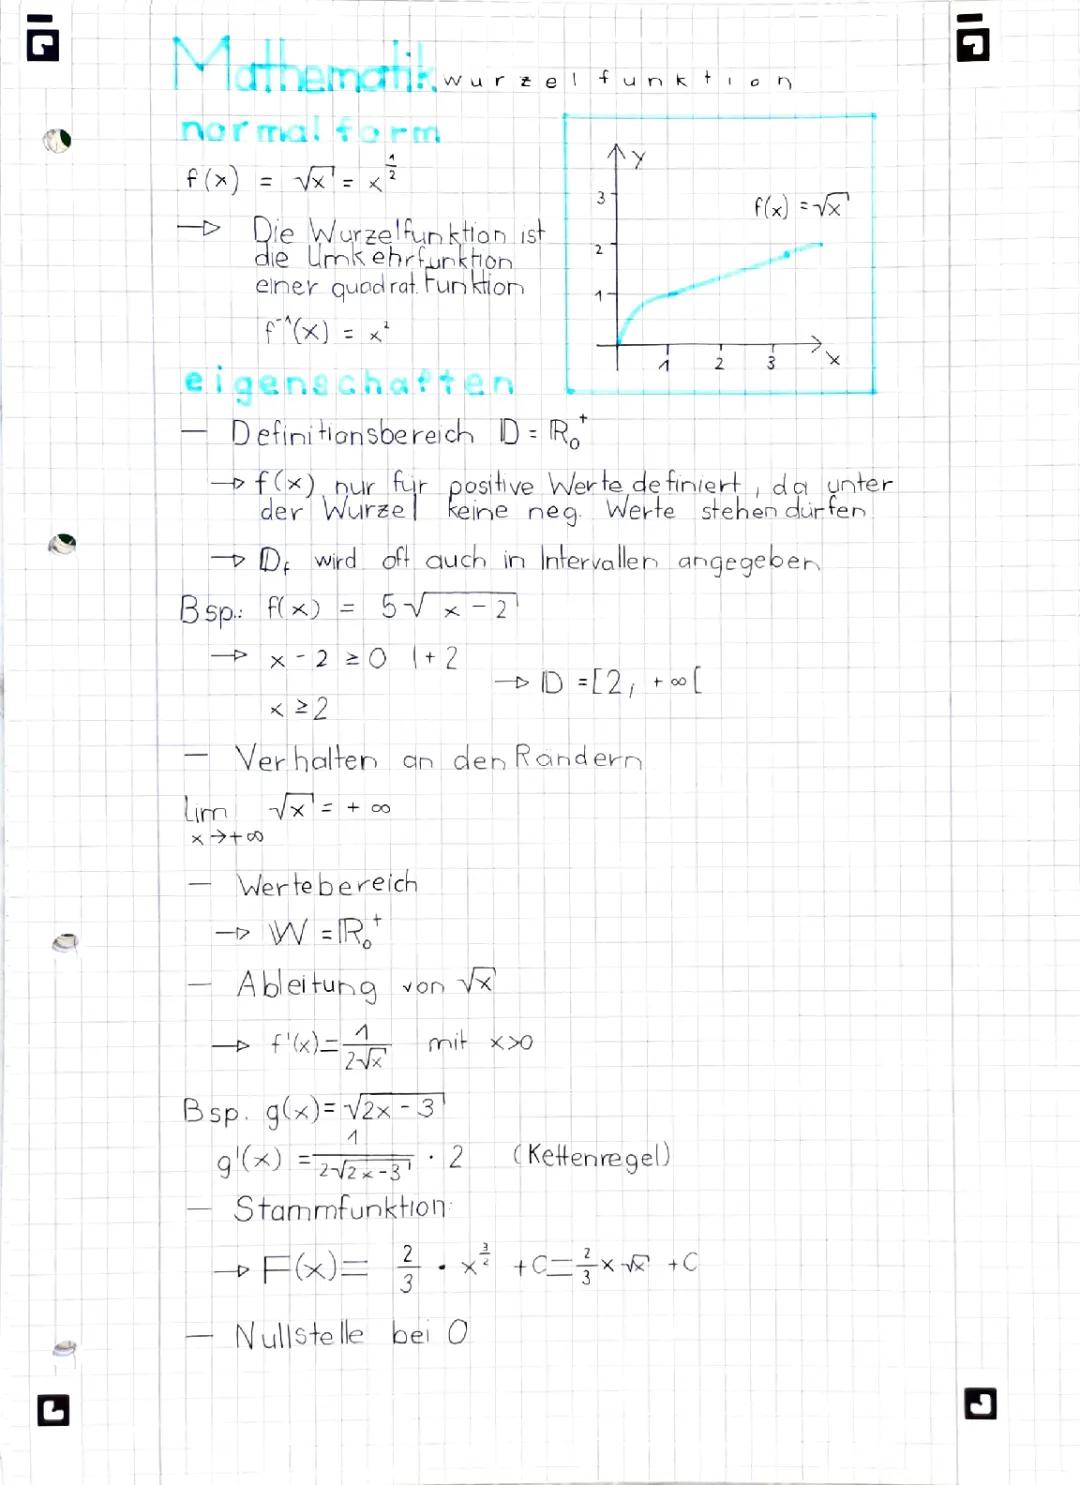 Mathematik wurzelfunktion
normalform
f(x) = √x = x^(1/2)
→ Die Wurzelfunktion ist
die Umkehrfunktion
einer quadrat. Funktion
f⁻¹(x) = x²
y
3
2
1
f(x) = √x
1 2 3 x
eigenschaften
– Definitionsbereich 𝔻 = ℝ₀⁺
→ f(x) nur für positive Werte definiert, da unter
der Wurzel keine neg. Werte stehen dürfen
→ 𝔻f wird oft auch in Intervallen angegeben
Bsp.: f(x) = 5√(x - 2)
→ x - 2 ≥ 0 | + 2
→ 𝔻 = [2, +∞[
x ≥ 2
– Verhalten an den Rändern
lim √x = + ∞
x → +∞
– Wertebereich
→ 𝕎 = ℝ₀⁺
– Ableitung von √x
→ f'(x) = 1/(2√x) mit x>0
Bsp. g(x) = √(2x - 3)
g'(x) = 1/(2√(2x-3)) · 2 (Kettenregel)
– Stammfunktion:
→ F(x) = 2/3 · x^(3/2) + C = 2/3 x √x + C
– Nullstelle bei 0